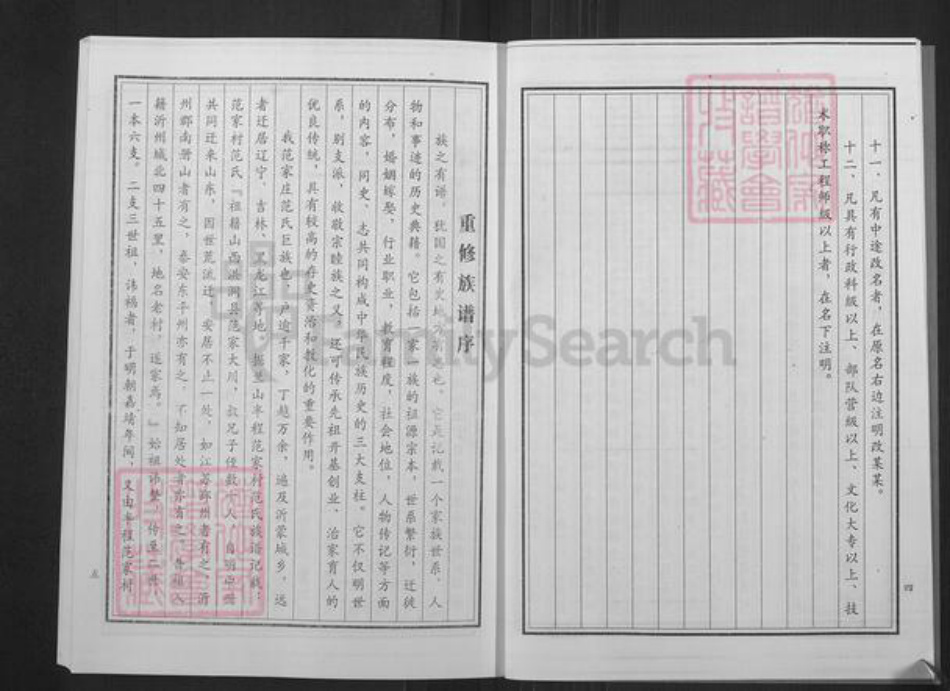 十一、凡有中途改名者，在原名右边注明改某某。
十二、凡具有行政科级以上、部队营级以上、文化大专以上、技
术职称工程师级以上者，在名下注明。
四
重修族谱序
族之有谱，犹国之有史地方有志也。它是记载一个家族世系、人
物和事迹的历史典籍。它包括一家一族的祖源宗本，世系繁衍，迁徙
分布，婚姻嫁娶，行业职业，教育程度，社会地位，人物传记等方面
的内容，同史、志共同构成中华民族历史的三大支柱。它不仅明世
系，别支派，收敬宗睦族之义，还可传承先祖开基创业、治家育人的
优良传统，具有较高的存史资治和教化的重要作用。
我范家庄范氏巨族也，户逾千家，丁越万余，遍及沂蒙城乡，远
者迁居辽宁、吉林、黑龙江等地。据里山半程范家村范氏族谱记载：
范家村范氏『祖籍山西洪洞县范家大川，叔兄子侄数十人，自明
共同迁来山东，因世荒流迁，安居不止一处，如江苏邳州者有之，沂
州鄪南册山者有之，泰安东平州亦有之，不知居处者亦有之。
籍沂州城北四十五里，地名老村，遂家焉。』始祖讳
一本六支。二支三世祖，讳福者，于明朝嘉靖年间，又由半程范家村
五
FamilySearch